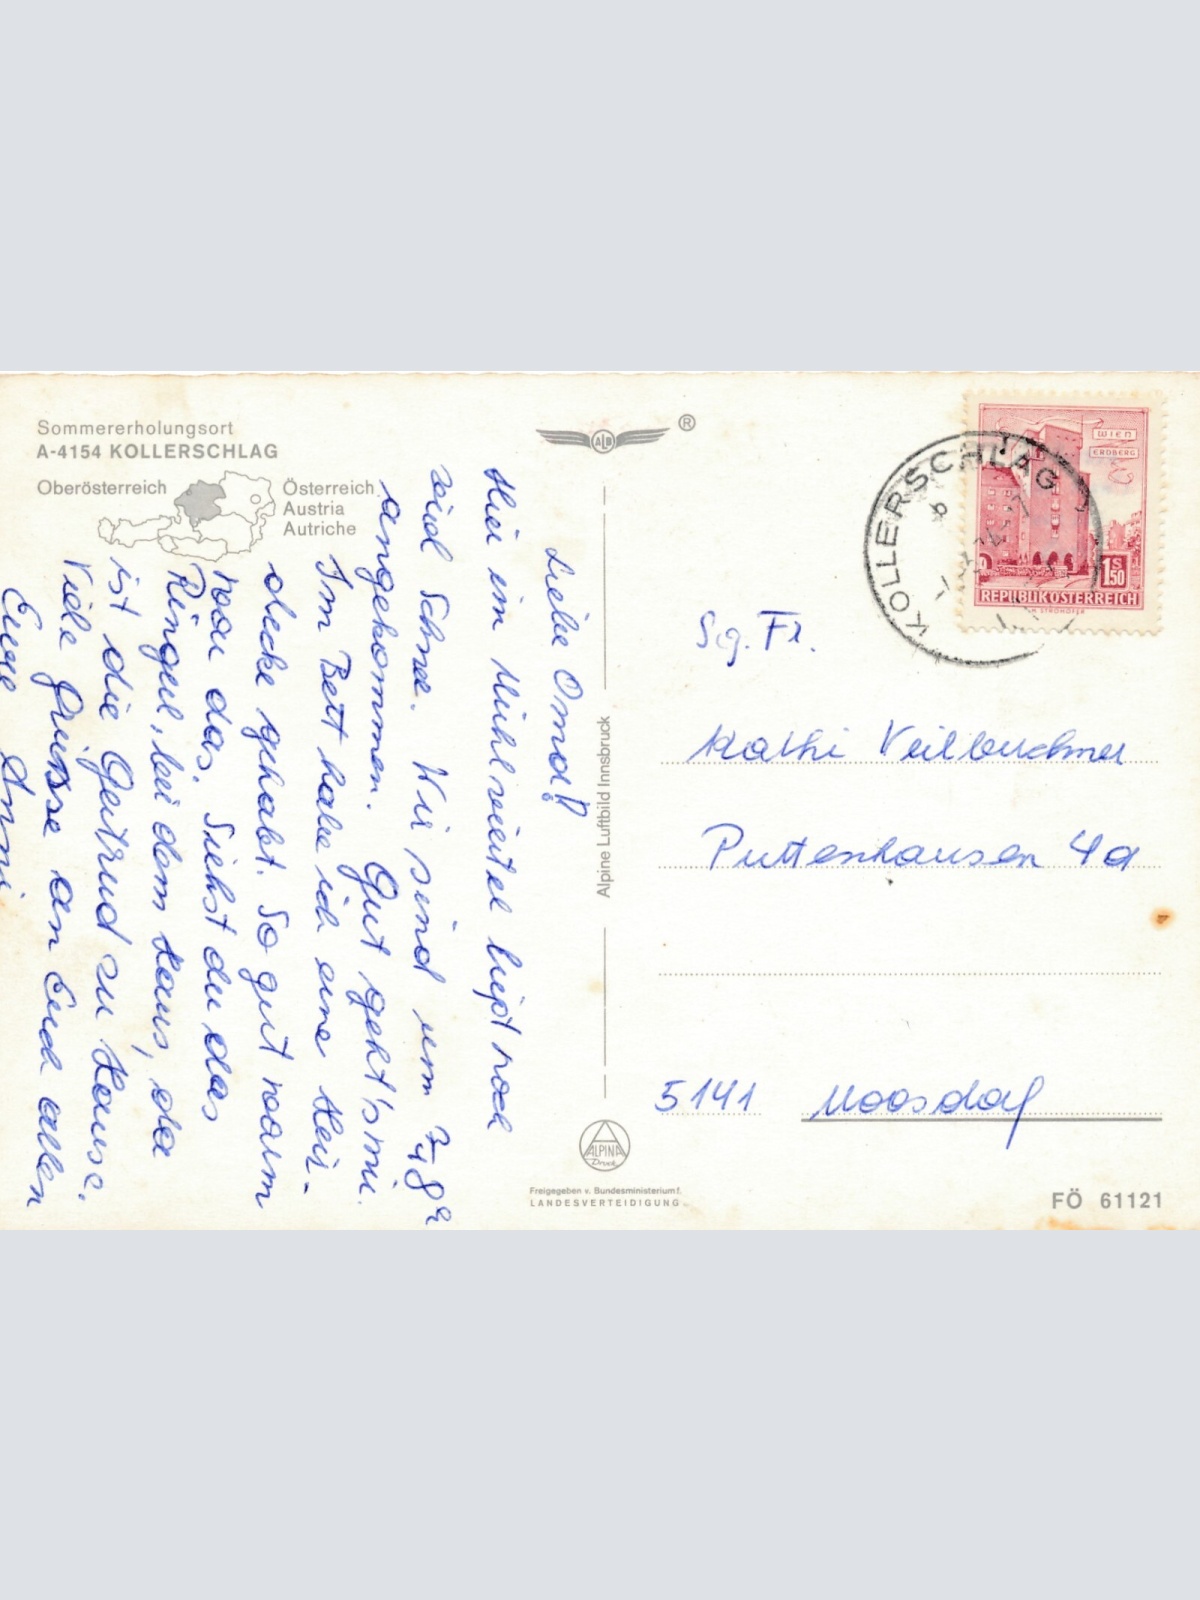 Sommererholungsort
A-4154 KOLLERSCHLAG
Oberösterreich
Österreich
Austria
Autriche
ALD
®
Liebe Oma!
Hier im Mühlviertel liegt noch
viel Schnee. Wir sind um ¾ 8ʰ
angekommen. Gut geht's mir.
Im Bett habe ich eine Heiz-
decke gehabt. So gut warm
war das. Siehst du das
Ringerl, bei dem Haus, da
ist die Gertrud zu Hause.
Viele Grüsse an Euch allen
Eure Anni
Alpine Luftbild Innsbruck
ALPINA
Druck
Freigegeben v. Bundesministerium f.
LANDESVERTEIDIGUNG
WIEN
ERDBERG
1S50
REPUBLIK ÖSTERREICH
KOLLERSCHLAG
Sg. Fr.
Kathi Veilbuchner
Puttenhausen 4a
5141 Moosdorf
FÖ 61121